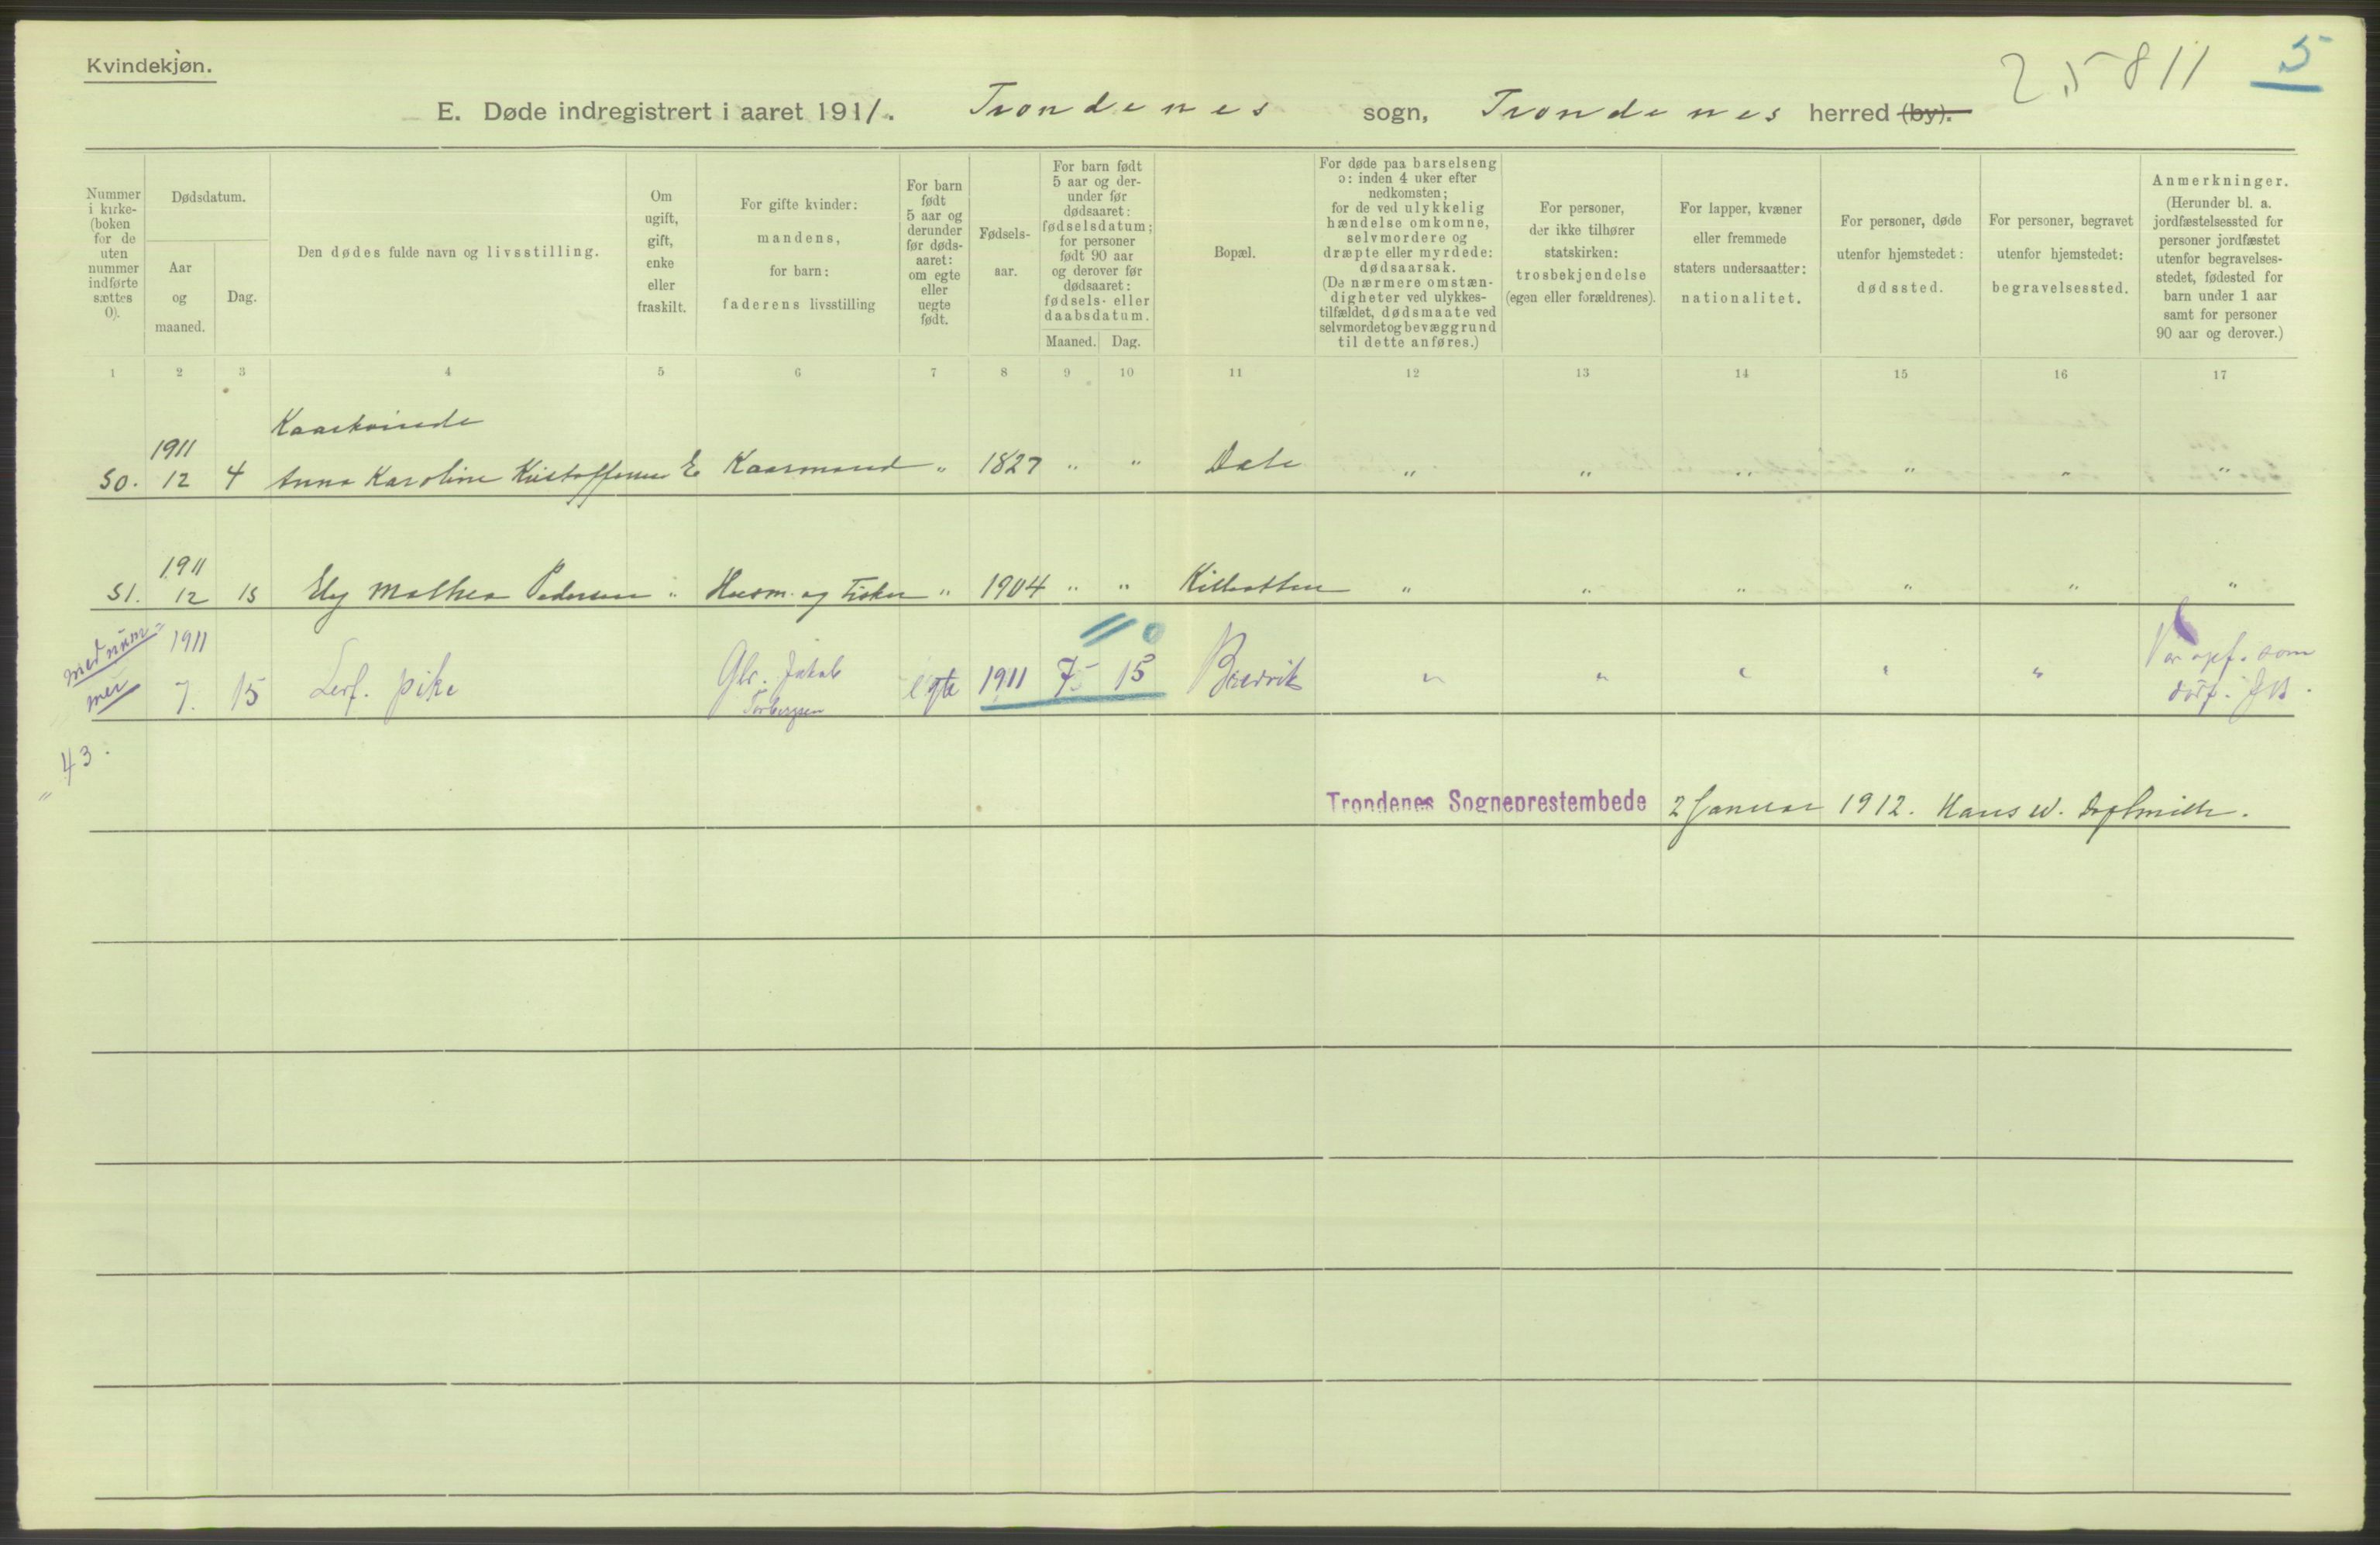 Kvindekjøn.
25811
5
E. Døde indregistrert i aaret 1911. Trondenes sogn, Trondenes herred (by).
Nummer i kirke-(boken for de uten nummer indførte sættes 0).
Dødsdatum.
Aar og maaned.
Dag.
Den dødes fulde navn og livsstilling.
Om ugift, gift, enke eller fraskilt.
For gifte kvinder: mandens, for barn: faderens livsstilling
For barn født 5 aar og derunder før døds-aaret: om egte eller uegte født.
Fødsels-aar.
For barn født 5 aar og der-under før dødsaaret: fødselsdatum; for personer født 90 aar og derover før dødsaaret: fødsels- eller daabsdatum.
Maaned. Dag.
Bopæl.
For døde paa barselseng ɔ: inden 4 uker efter nedkomsten; for de ved ulykkelig hændelse omkomne, selvmordere og dræpte eller myrdede: dødsaarsak. (De nærmere omstæn-digheter ved ulykkes-tilfældet, dødsmaate ved selvmordet og bevæggrund til dette anføres.)
For personer, der ikke tilhører statskirken: trosbekjendelse (egen eller forældrenes).
For lapper, kvæner eller fremmede staters undersaatter: nationalitet.
For personer, døde utenfor hjemstedet: dødssted.
For personer, begravet utenfor hjemstedet: begravelsessted.
Anmerkninger. (Herunder bl. a. jordfæstelsessted for personer jordfæstet utenfor begravelses-stedet, fødested for barn under 1 aar samt for personer 90 aar og derover.)
1 2 3 4 5 6 7 8 9 10 11 12 13 14 15 16 17
Kaarkvinde
1911
50. 12 4 Anna Karoline Kristoffersen E Kaarmand " 1827 " " Dale " " " " " "
1911
51. 12 15 Ely Mathea Pedersen " Husm. og Fisker " 1904 " " Kilbotten " " " " " "
med num-mer 1911 11 0
7. 15 Levf. pike Gbr. Jakob Torbergsen egte 1911 7 15 Bredvik " " " " " Var opf. som dødf.
" 43.
Trondenes Sogneprestembede 2 Januar 1912. Hans W.